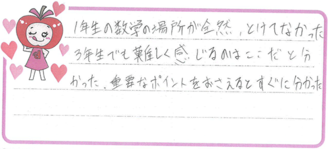 1年生の数学の場所が全然、とけてなかった
3年生でも難しく感じるのはここだと分
かった、重要なポイントをおさえるとすぐに分かった